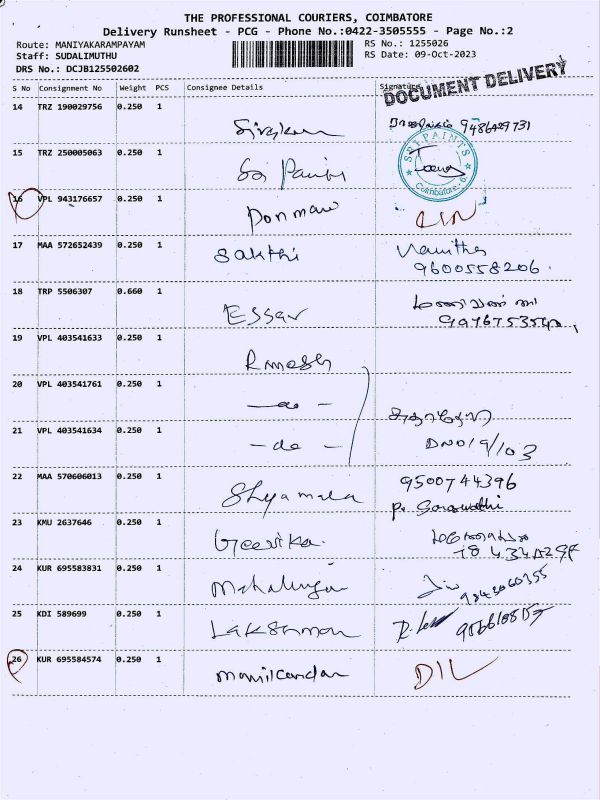 THE PROFESSIONAL COURIERS, COIMBATORE
Delivery Runsheet - PCG - Phone No.:0422-3505555 - Page No.:2
Route: MANIYAKARAMPAYAM
RS No.: 1255026
Staff: SUDALIMUTHU
RS Date: 09-Oct-2023
DRS No.: DCJB125502602
DOCUMENT DELIVERY
S No Consignment No Weight PCS Consignee Details Signature
14 TRZ 190029756 0.250 1
9486429731
15 TRZ 250005063 0.250 1
SRI PAINTS
Coimbatore-6
Sri Paints
16 VPL 943176657 0.250 1
Ponmani
17 MAA 572652439 0.250 1
Sakthi
9600558206
18 TRP 5506307 0.660 1
Essar
19 VPL 403541633 0.250 1
Rmesh
20 VPL 403541761 0.250 1
- do -
21 VPL 403541634 0.250 1
- do - DNO 19/103
22 MAA 570606013 0.250 1
9500744396
Shyamala
23 KMU 2637646 0.250 1
Geerika
24 KUR 695583831 0.250 1
25 KDI 589699 0.250 1
Lakshman
26 KUR 695584574 0.250 1
Manikandan DIL